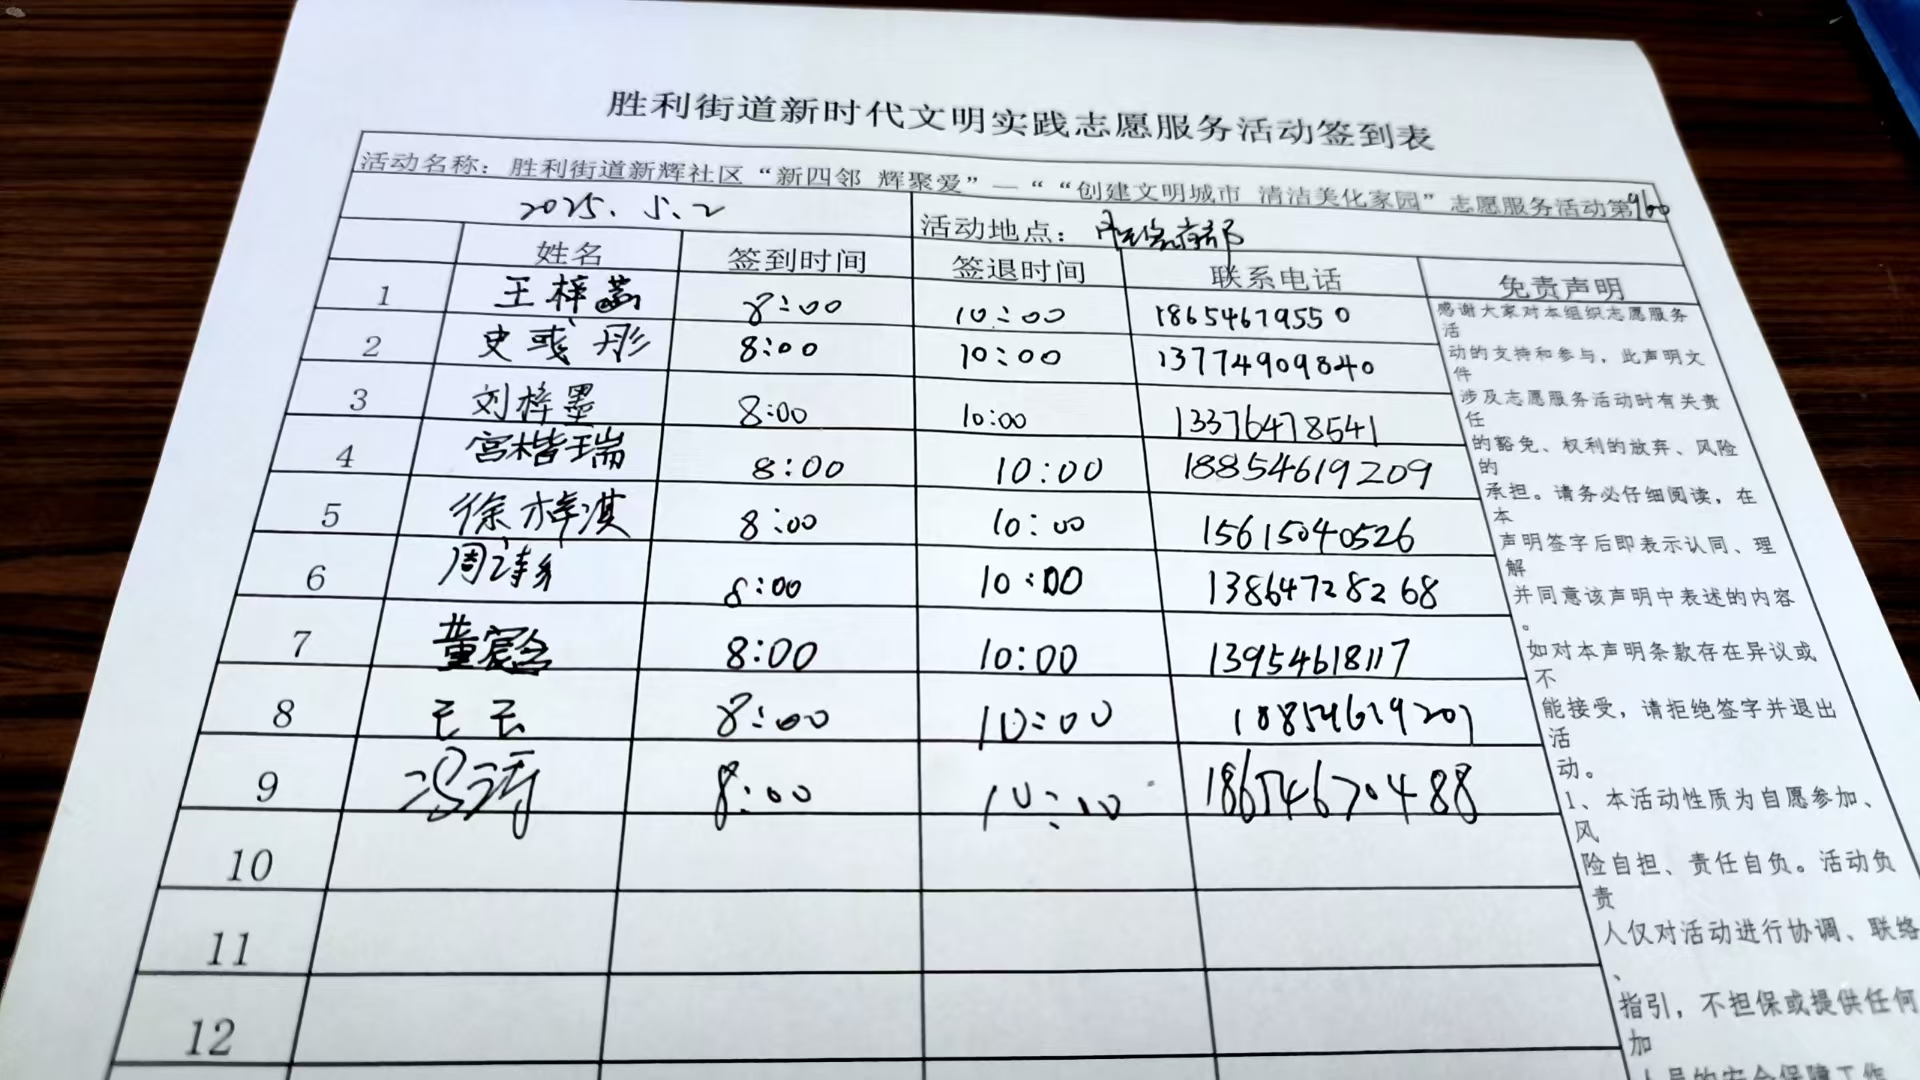 胜利街道新时代文明实践志愿服务活动签到表
活动名称：胜利街道新辉社区“新四邻 辉聚爱”—““创建文明城市 清洁美化家园”志愿服务活动第960
2025.5.2 活动地点：
姓名 签到时间 签退时间 联系电话 免责声明
1 王梓菡 8:00 10:00 18654679550
2 史彧彤 8:00 10:00 13774909840
3 刘梓墨 8:00 10:00 13376478541
4 宫楷瑞 8:00 10:00 18854619209
5 徐梓淇 8:00 10:00 15615040526
6 周 8:00 10:00 13864728268
7 董宸含 8:00 10:00 13954618117
8 8:00 10:00 18854619209
9 冯涛 8:00 10:10 18654670488
10
11
12
感谢大家对本组织志愿服务
活
动的支持和参与，此声明文
件
涉及志愿服务活动时有关责
任
的豁免、权利的放弃、风险
的
承担。请务必仔细阅读，在
本
声明签字后即表示认同、理
解
并同意该声明中表述的内容
。
如对本声明条款存在异议或
不
能接受，请拒绝签字并退出
活
动。
1、本活动性质为自愿参加、
风
险自担、责任自负。活动负
责
人仅对活动进行协调、联络
、
指引，不担保或提供任何
加
人员的安全保障工作